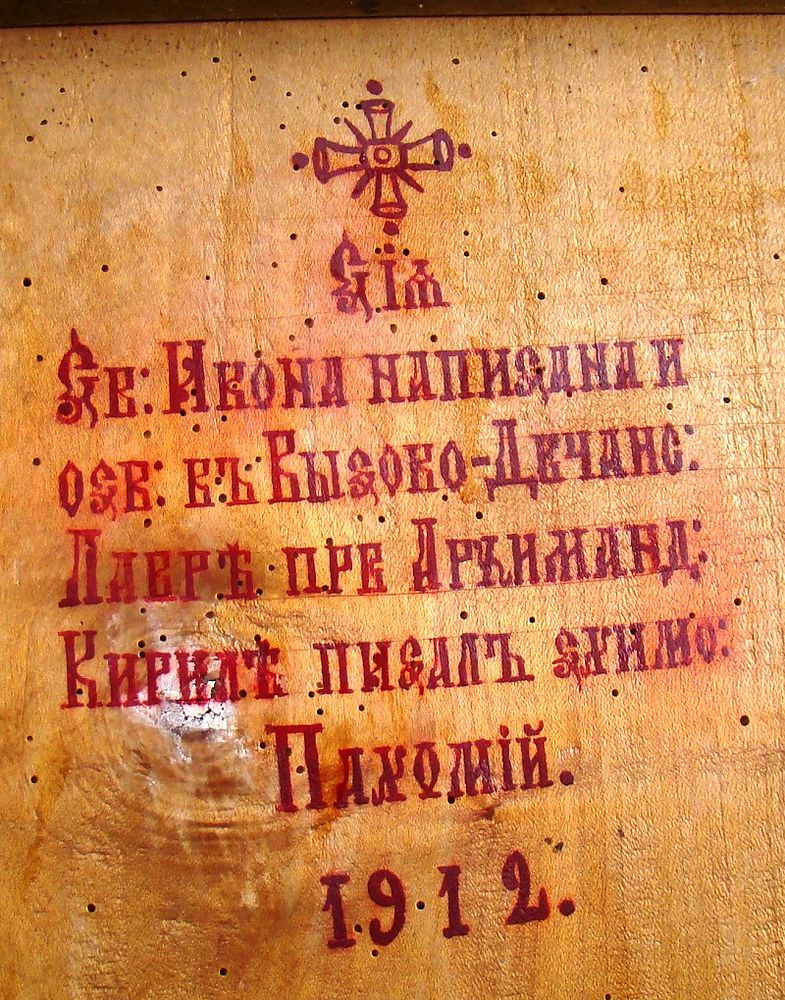 Сіѧ
Св: Икона написана и
осв: въ Высово-Дечанс:
Лаврѣ при Архиманд:
Кирилѣ писалъ схимо:
Пахомій.
1912.